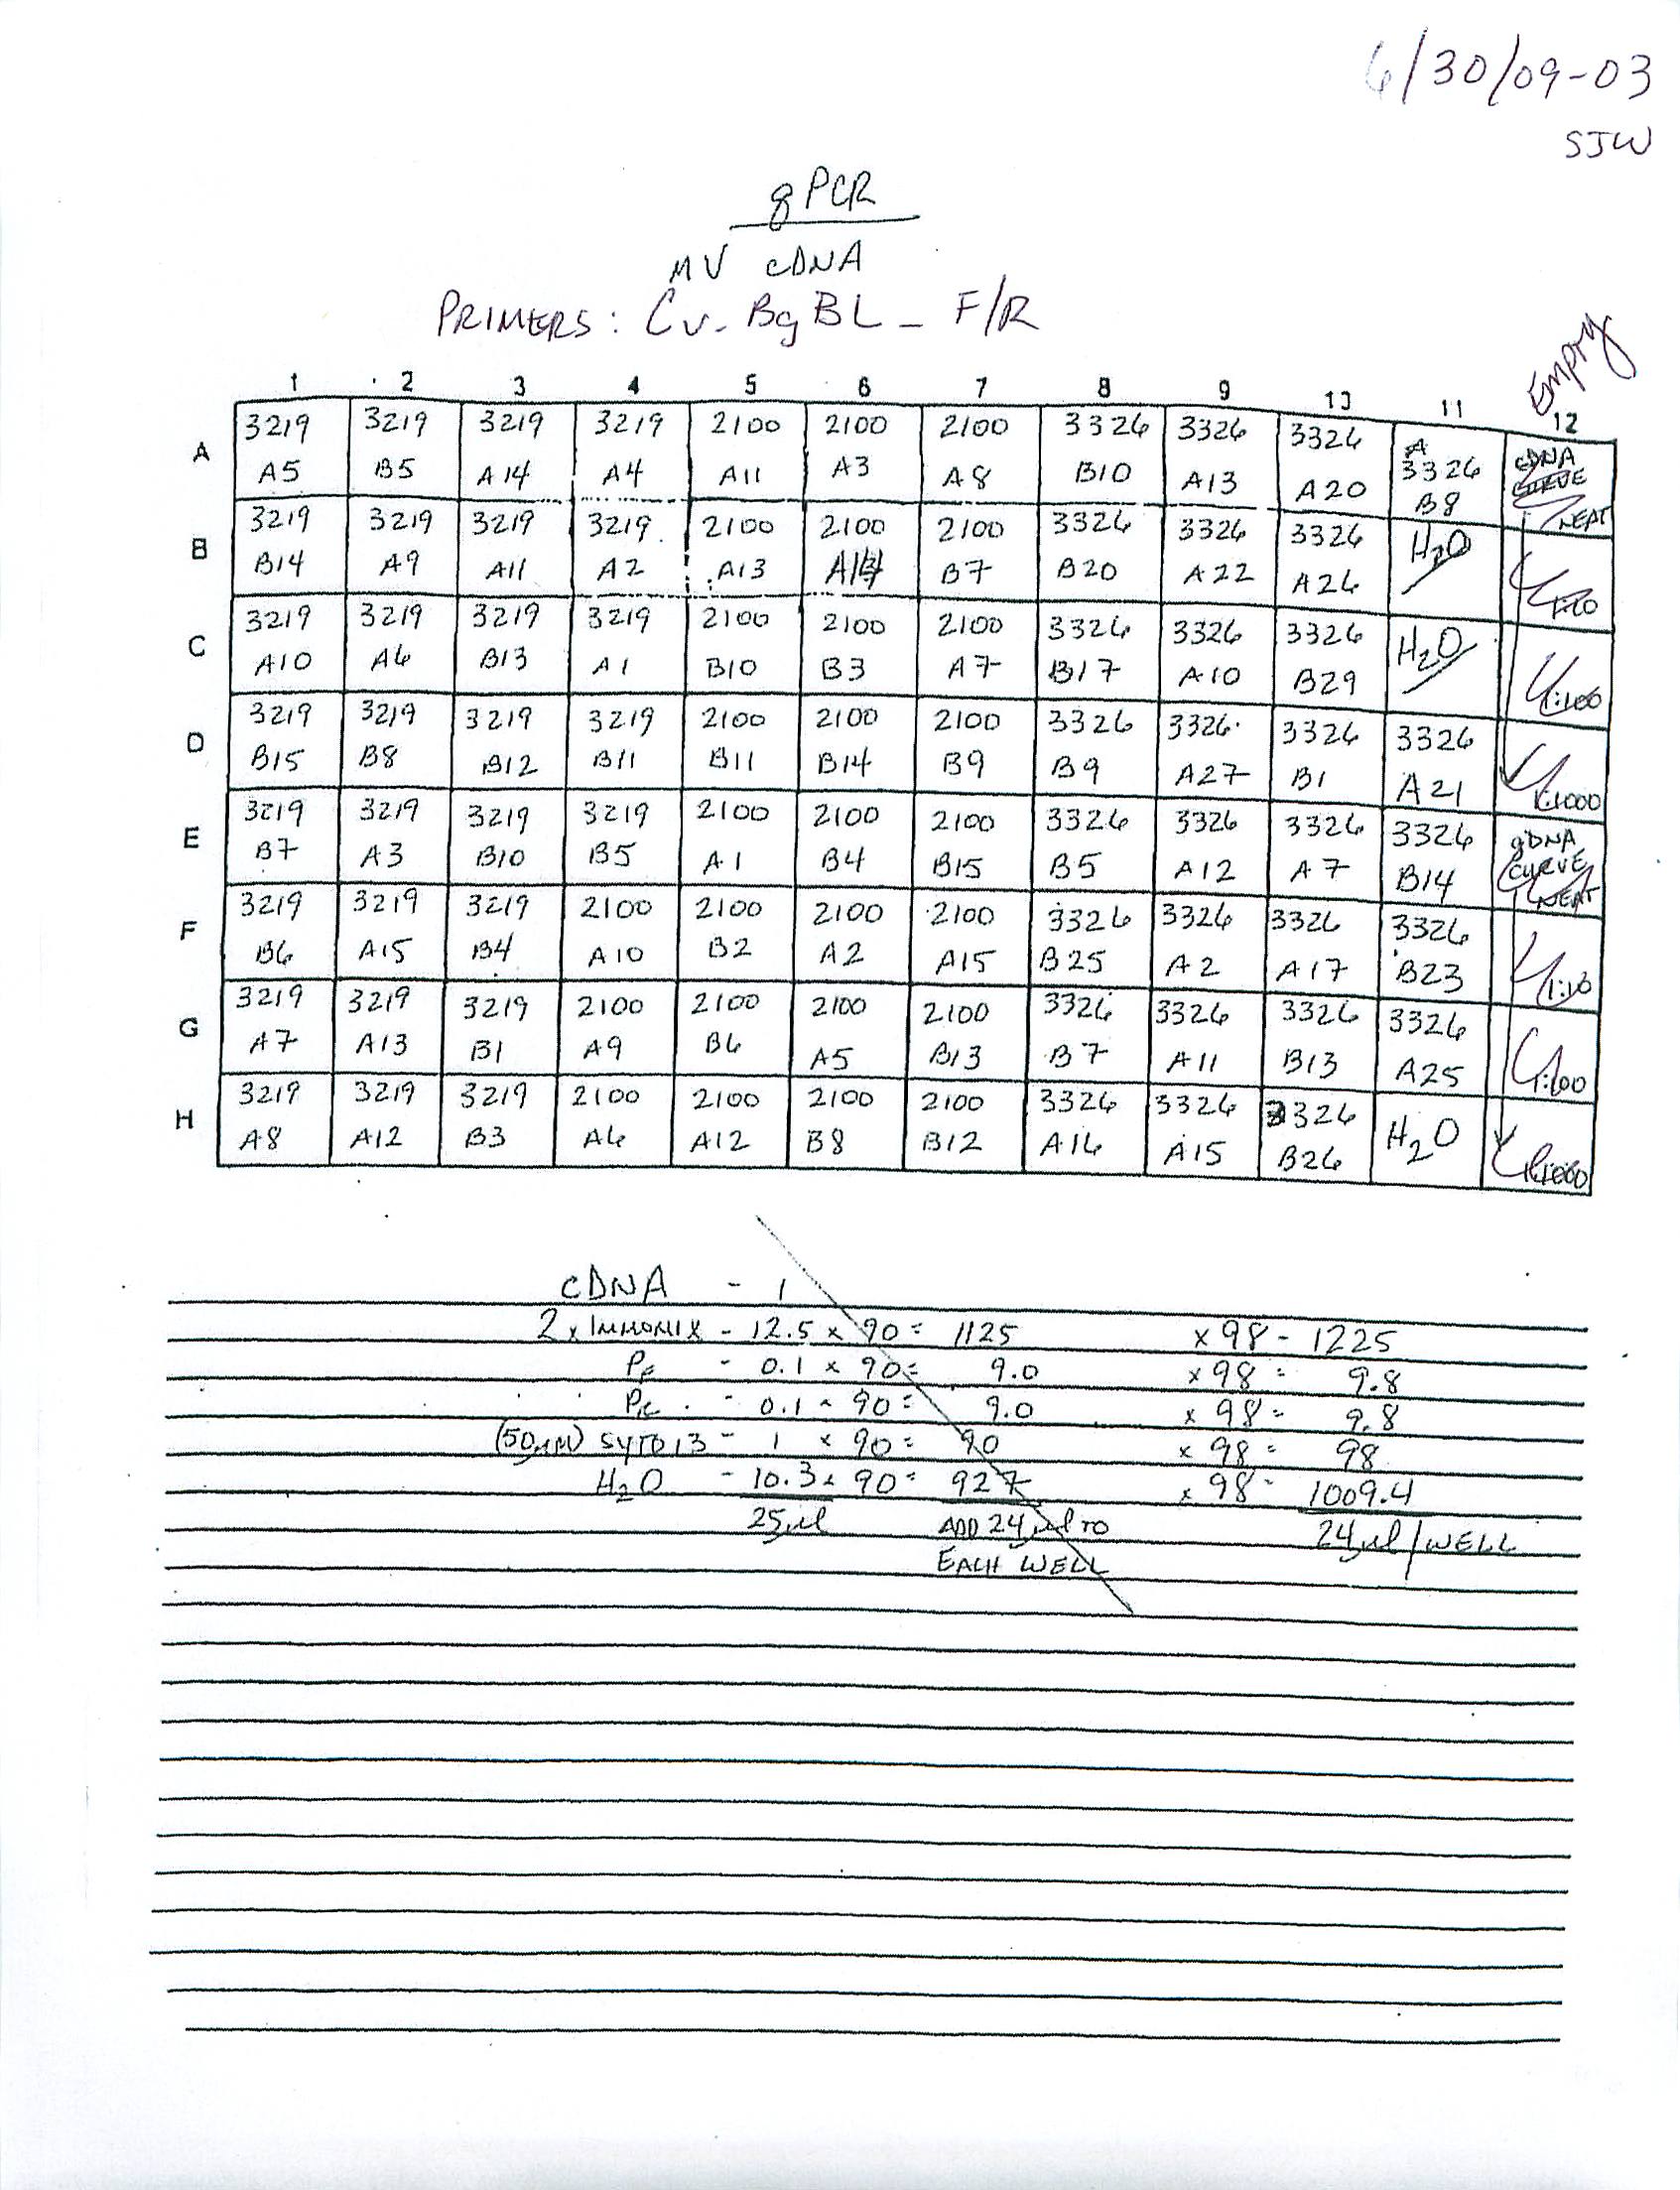 6/30/09-03
SJW
qPCR
MV cDNA
PRIMERS: Cv_BgBL_F/R
Empty
1 2 3 4 5 6 7 8 9 10 11 12
A 3219 3219 3219 3219 2100 2100 2100 3326 3326 3326 3326 cDNA CURVE
A5 B5 A14 A4 A11 A3 A8 B10 A13 A20 B8 NEAT
B 3219 3219 3219 3219 2100 2100 2100 3326 3326 3326 H2O
B14 A9 A11 A2 A13 B7 B20 A22 A26 1:10
C 3219 3219 3219 3219 2100 2100 2100 3326 3326 3326 H2O
A10 A6 B13 A1 B10 B3 A7 B17 A10 B29 1:100
D 3219 3219 3219 3219 2100 2100 2100 3326 3326 3326 3326
B15 B8 B12 B11 B11 B14 B9 B9 A27 B1 A21 1:1000
E 3219 3219 3219 3219 2100 2100 2100 3326 3326 3326 3326 gDNA CURVE
B7 A3 B10 B5 A1 B4 B15 B5 A12 A7 B14 NEAT
F 3219 3219 3219 2100 2100 2100 2100 3326 3326 3326 3326
B6 A15 B4 A10 B2 A2 A15 B25 A2 A17 B23 1:10
G 3219 3219 3219 2100 2100 2100 2100 3326 3326 3326 3326
A7 A13 B1 A9 B6 A5 B13 B7 A11 B13 A25 1:100
H 3219 3219 3219 2100 2100 2100 2100 3326 3326 3326 H2O
A8 A12 B3 A6 A12 B8 B12 A16 A15 B26 1:1000
cDNA - 1
2x IMMOMIX - 12.5 x 90 = 1125 x 98 - 1225
PF - 0.1 x 90 = 9.0 x 98 = 9.8
PR - 0.1 x 90 = 9.0 x 98 = 9.8
(50µM) SYTO13 - 1 x 90 = 90 x 98 = 98
H2O - 10.3 x 90 = 927 x 98 = 1009.4
25µl ADD 24µl TO 24µl/WELL
EACH WELL